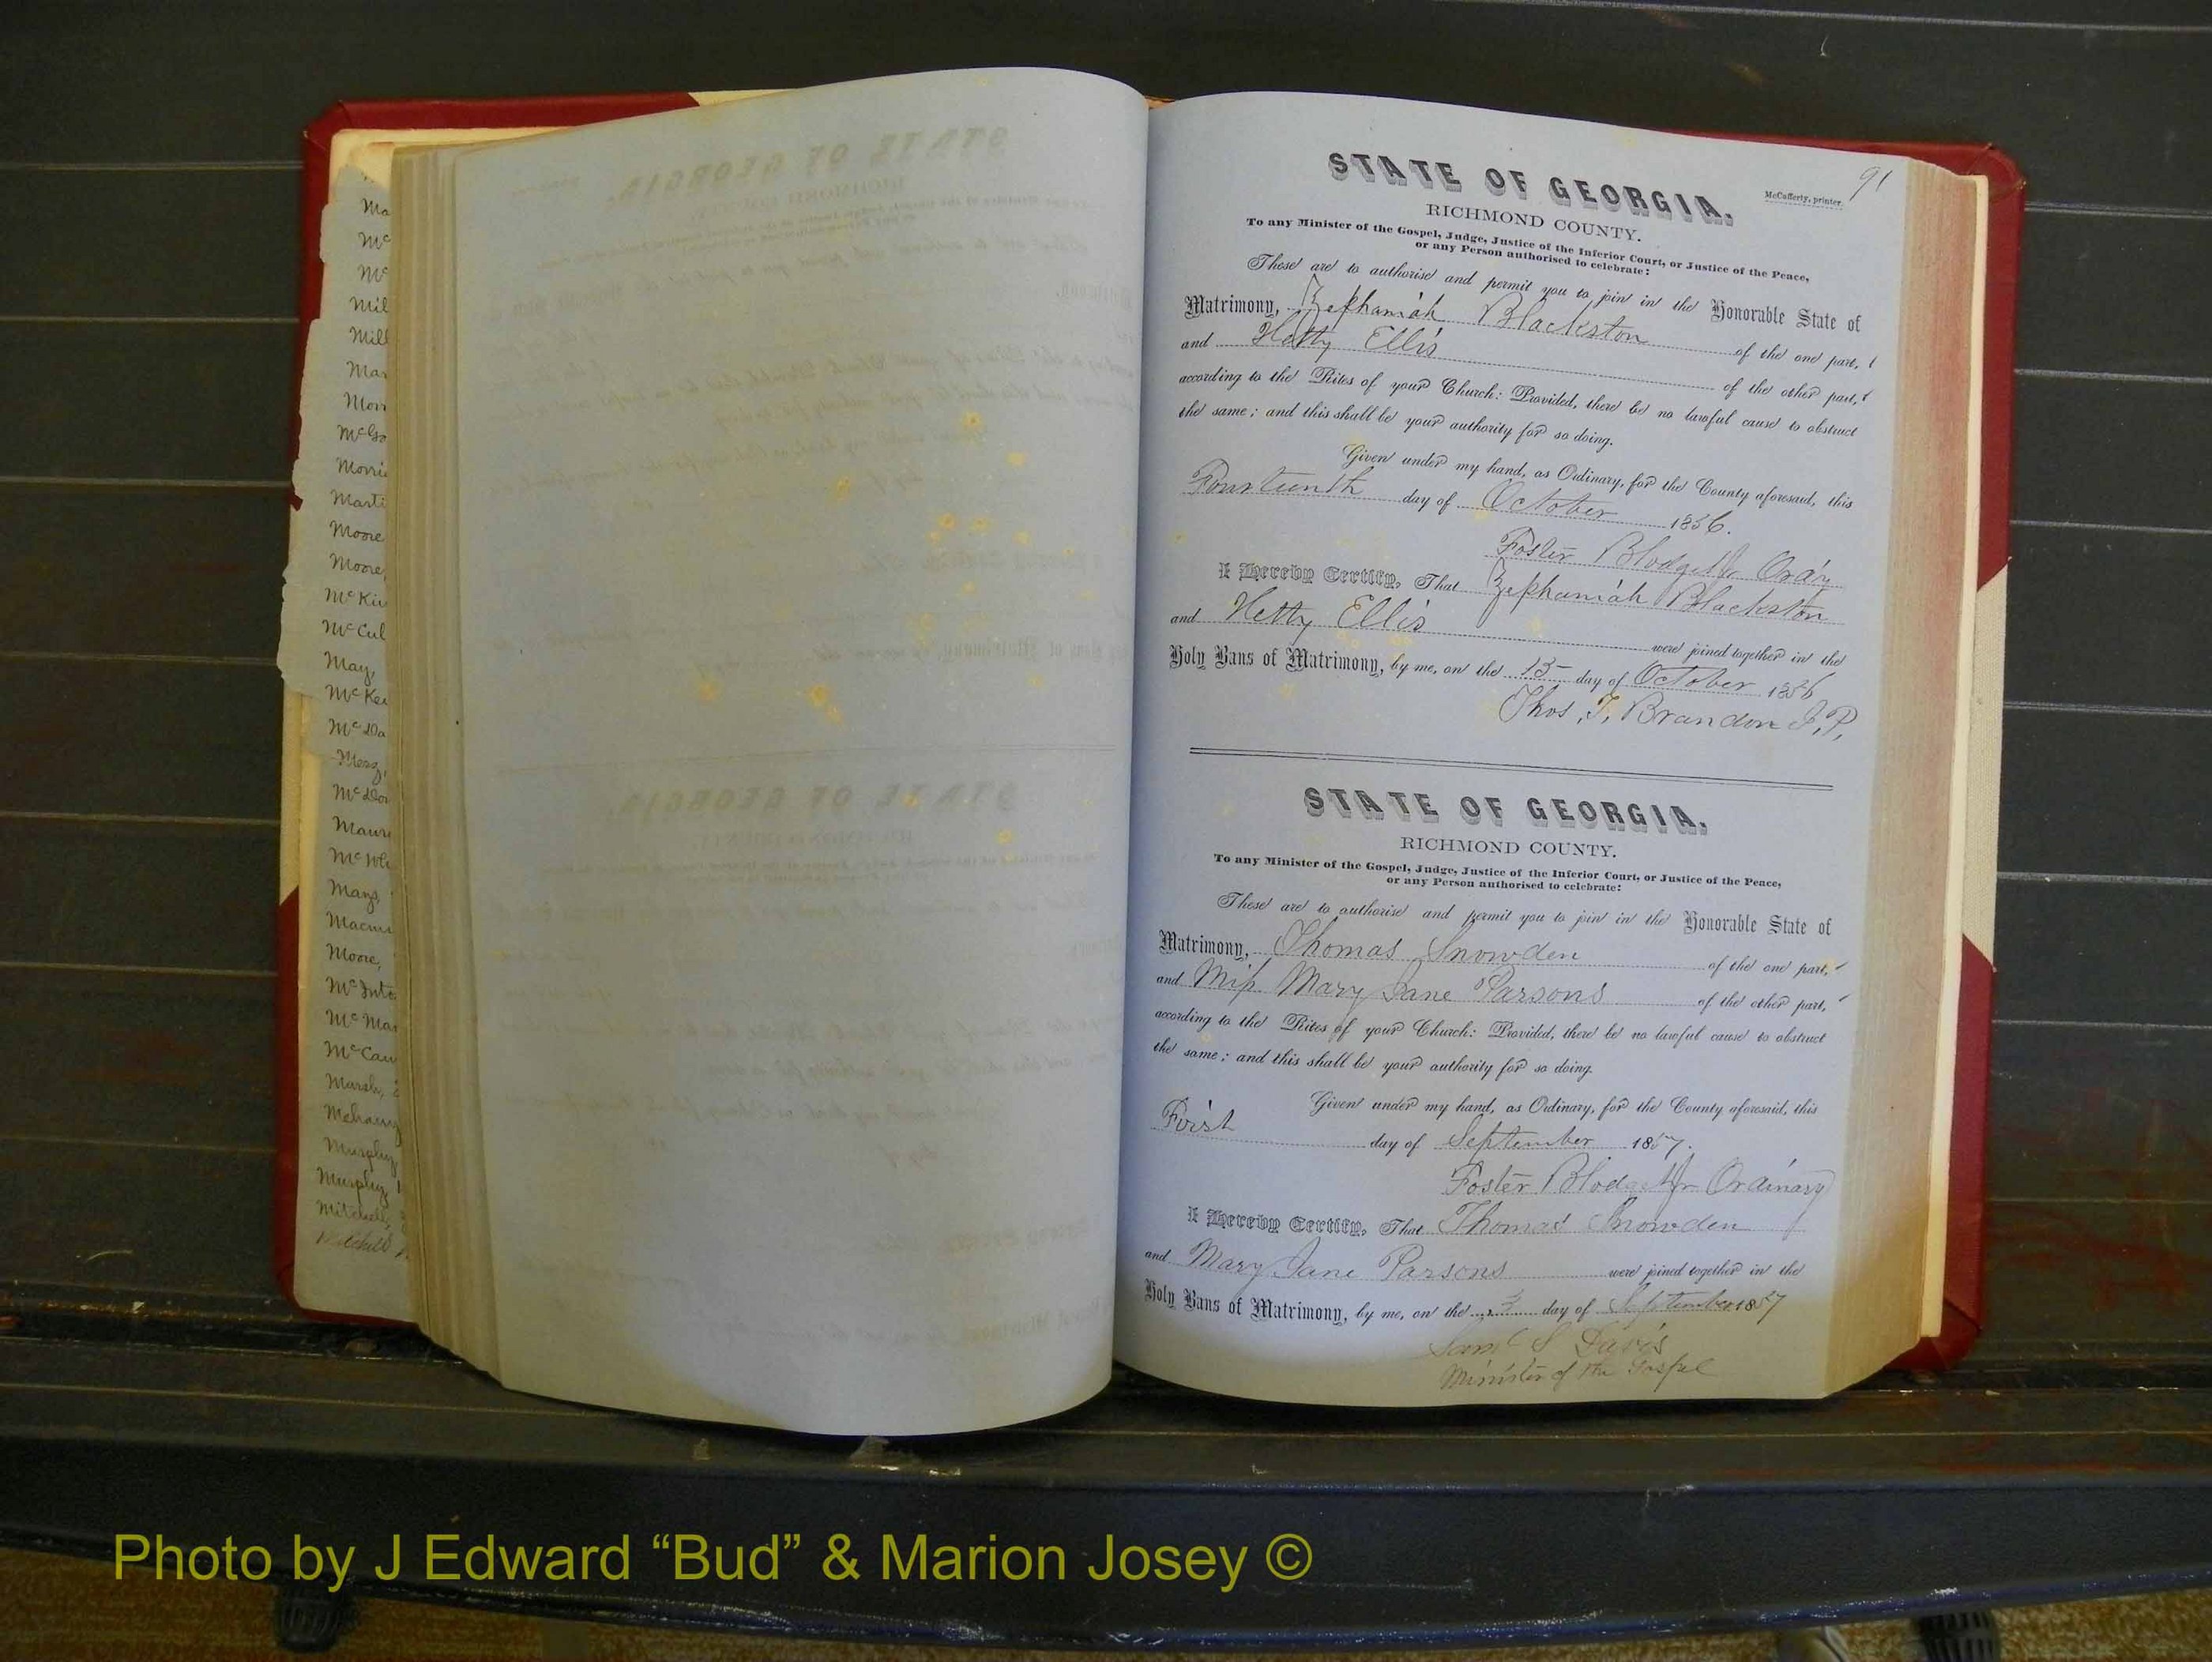 Ma
Mc
Mc
Mil
Mill
Mar
Morr
McGo
Morri
Marti
Moore
Moore,
McKi
McCul
May,
McKe
McDa
McDo
Maur
McWh
Mays
Macm
Moore,
McInto
McMa
McCau
Marsh,
Murphy
Murphy,
Mitchell,
Mitchell
91
STATE OF GEORGIA.
McCafferty, printer.
RICHMOND COUNTY.
To any Minister of the Gospel, Judge, Justice of the Inferior Court, or Justice of the Peace,
or any Person authorised to celebrate:
These are to authorise and permit you to join in the Honorable State of
Matrimony, Zephaniah Blackston of the one part,
and Hetty Ellis of the other part,
according to the Rites of your Church: Provided, there be no lawful cause to obstruct
the same; and this shall be your authority for so doing.
Given under my hand, as Ordinary, for the County aforesaid, this
Fourteenth day of October 1856.
Foster Blodgett Jr Ordy
I Hereby Certify, That Zephaniah Blackston
and Hetty Ellis were joined together in the
Holy Bans of Matrimony, by me, on the 15 day of October 1856
Thos. T. Brandon J.P.
STATE OF GEORGIA.
RICHMOND COUNTY.
To any Minister of the Gospel, Judge, Justice of the Inferior Court, or Justice of the Peace,
or any Person authorised to celebrate:
These are to authorise and permit you to join in the Honorable State of
Matrimony, Thomas Snowden of the one part,
and Miss Mary Jane Parsons of the other part,
according to the Rites of your Church: Provided, there be no lawful cause to obstruct
the same; and this shall be your authority for so doing.
Given under my hand, as Ordinary, for the County aforesaid, this
First day of September 1857.
Foster Blodgett Jr Ordinary
I Hereby Certify, That Thomas Snowden
and Mary Jane Parsons were joined together in the
Holy Bans of Matrimony, by me, on the 3 day of September 1857
Saml S Davis
Minister of the Gospel
Photo by J Edward “Bud” & Marion Josey ©